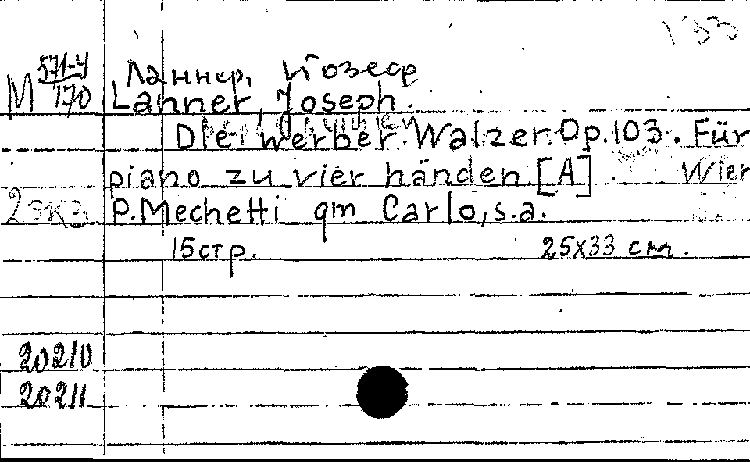 133
М 571-4/170 Ланнер, Йозеф
Lanner, Joseph.
Die Werber. Walzer. Op. 103. Für
piano zu vier händen [A]. Wien
2 экз P. Mechetti qm Carlo, s.a.
15 стр. 25x33 см.
20210
20211